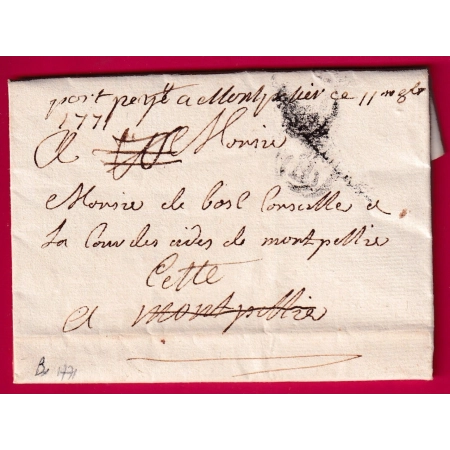 port payé a Montpelier ce 11
1771
A Monsie
Monsie de bosc Conseille a
La Cour des aides de montpellie
Cette
a montpellie
1771